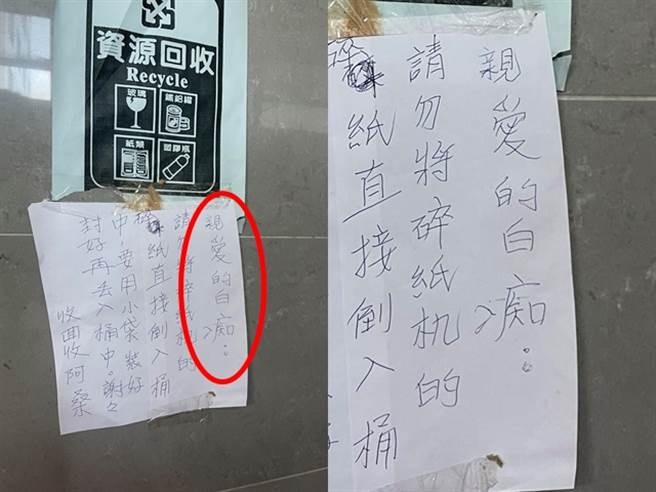 資源回收
Recycle
玻璃
鐵鋁罐
紙類
塑膠瓶
親愛的白痴:
請勿將碎紙机的
碎紙直接倒入桶
中要用小袋裝好
封好再丟入桶中。謝々
收回收阿桑
親愛的白痴:
請勿將碎紙机的
碎紙直接倒入桶